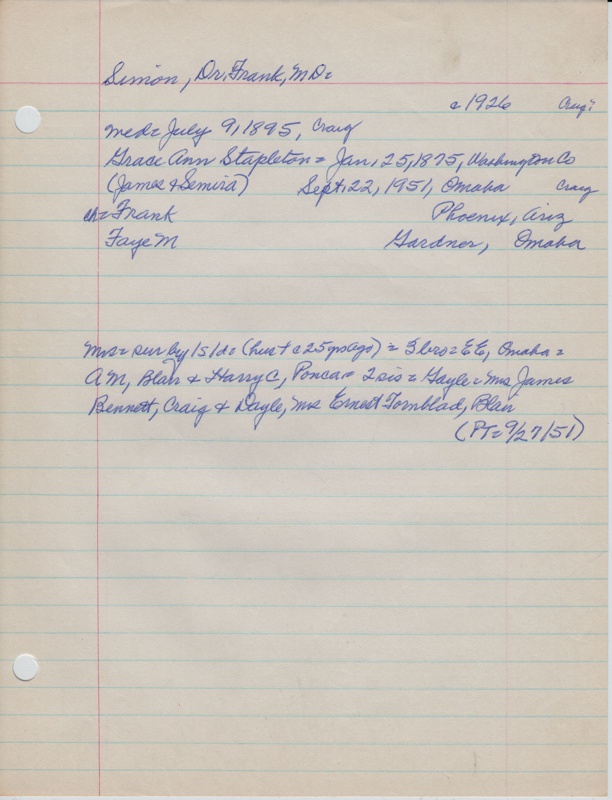 Simon, Dr. Frank, MD=
c1926 Craig?
med= July 9, 1895, Craig
Grace Ann Stapleton = Jan. 25, 1875, Washington Co
(James & Semira) Sept. 22, 1951, Omaha Craig
ch= Frank Phoenix, Ariz
Faye M Gardner, Omaha
Mrs= sur by 1s 1d= (hus + c25 yrs ago) = 3 bro= EE, Omaha =
AM, Blair & Harry C, Ponca= 2 sis= Gayle= Mrs James
Bennett, Craig & Dayle, Mrs Ernest Tornblad, Blair
(PT= 9/27/51)